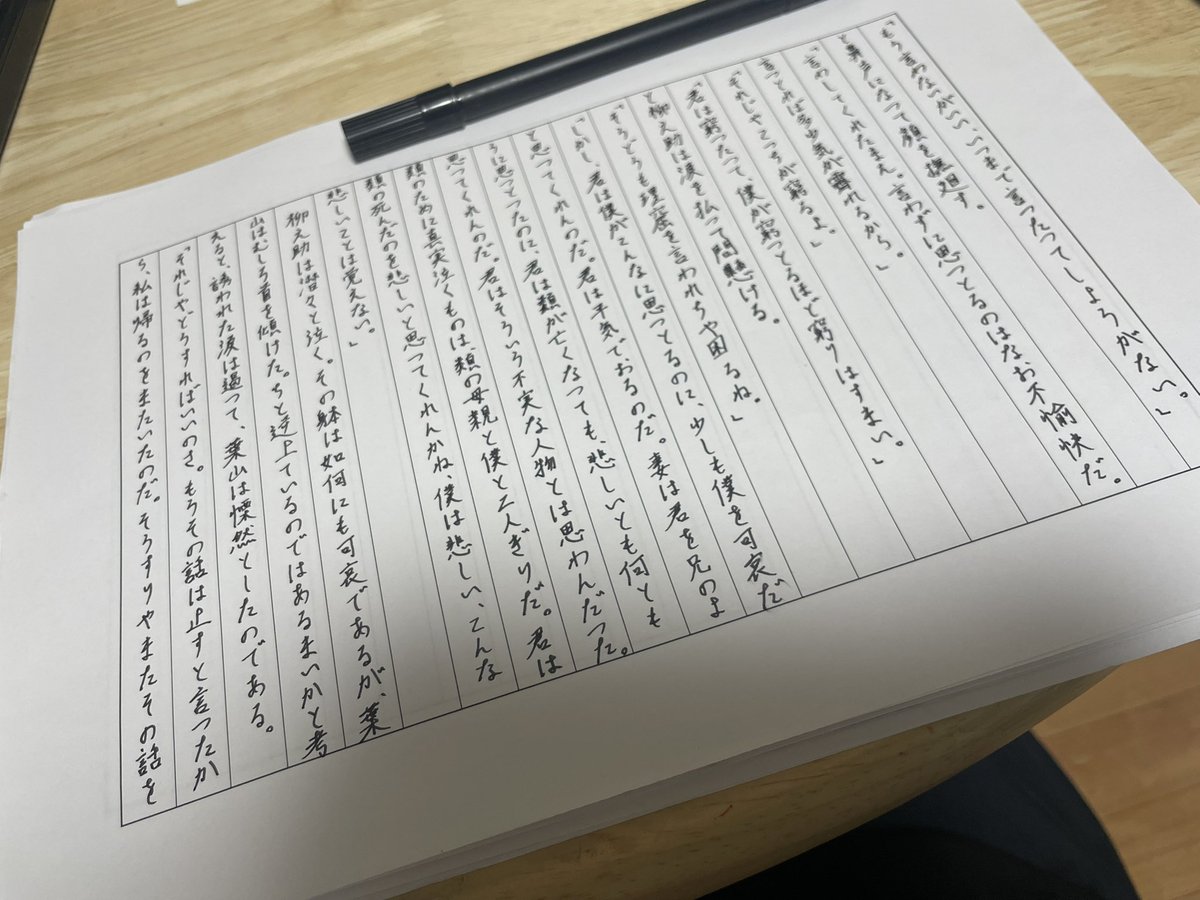 「もう言わないがいい、いつまで言ったってしようがない。」
と鼻声になって顔を撫廻す。
「言わしてくれたまえ。言わずに思っとるのはな、お不愉快だ。
言っとれば多少気が霽れるから。」
「それじゃこっちが窮るよ。」
「君は窮ったって、僕が窮っとるほど窮りはすまい。」
と柳之助は涙を払って問懸ける。
「そうどうも理窟を言われちゃ困るね。」
「しかし、君は僕がこんなに思っとるのに、少しも僕を可哀だ
と思ってくれんのだ。君は平気でおるのだ。妻は君を兄のよ
うに思っとったのに、君は類が亡くなっても、悲しいとも何とも
思ってくれんのだ。君はそういう不実な人物とは思わんだった。
類のために真実泣くものは、類の母親と僕と二人ぎりだ。君は
類の死んだのを悲しいと思ってくれんかね、僕は悲しい、こんな
悲しいことは覚えない。」
柳之助は潜々と泣く。その躰は如何にも可哀であるが、葉
山はむしろ首を傾けた。ちと逆上ているのではあるまいかと考
えると、誘われた涙は遏って、葉山は慄然としたのである。
「それじゃどうすればいいのさ。もうその話は止すと言ったか
ら、私は帰るのをまたいたのだ。そうすりゃまたその話を